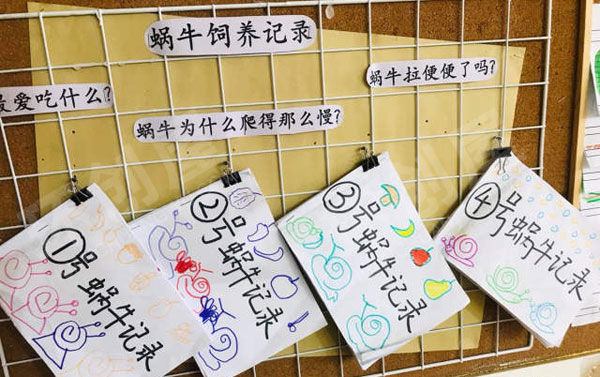 蜗牛饲养记录
最爱吃什么?
蜗牛为什么爬得那么慢?
蜗牛拉便便了吗?
①号蜗牛记录
②号蜗牛记录
③号蜗牛记录
④号蜗牛记录